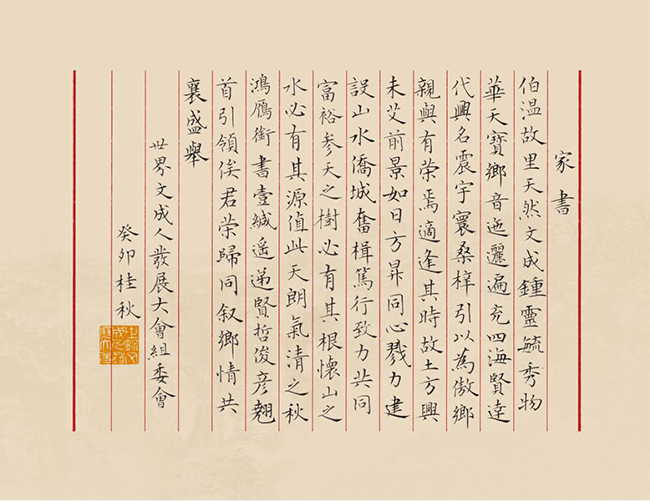 家書
伯温故里天然文成鍾靈毓秀物
華天寶鄉音迤邐遍充四海賢達
代興名震宇寰桑梓引以為傲鄉
親與有荣焉適逢其時故土方興
未艾前景如日方昇同心戮力建
設山水僑城奮楫篤行致力共同
富裕参天之樹必有其根懷山之
水必有其源值此天朗氣清之秋
鴻鴈銜書壹緘遥递賢哲俊彦翹
首引領俟君荣歸同叙鄉情共
襄盛舉
世界文成人發展大會組委會
癸卯桂秋